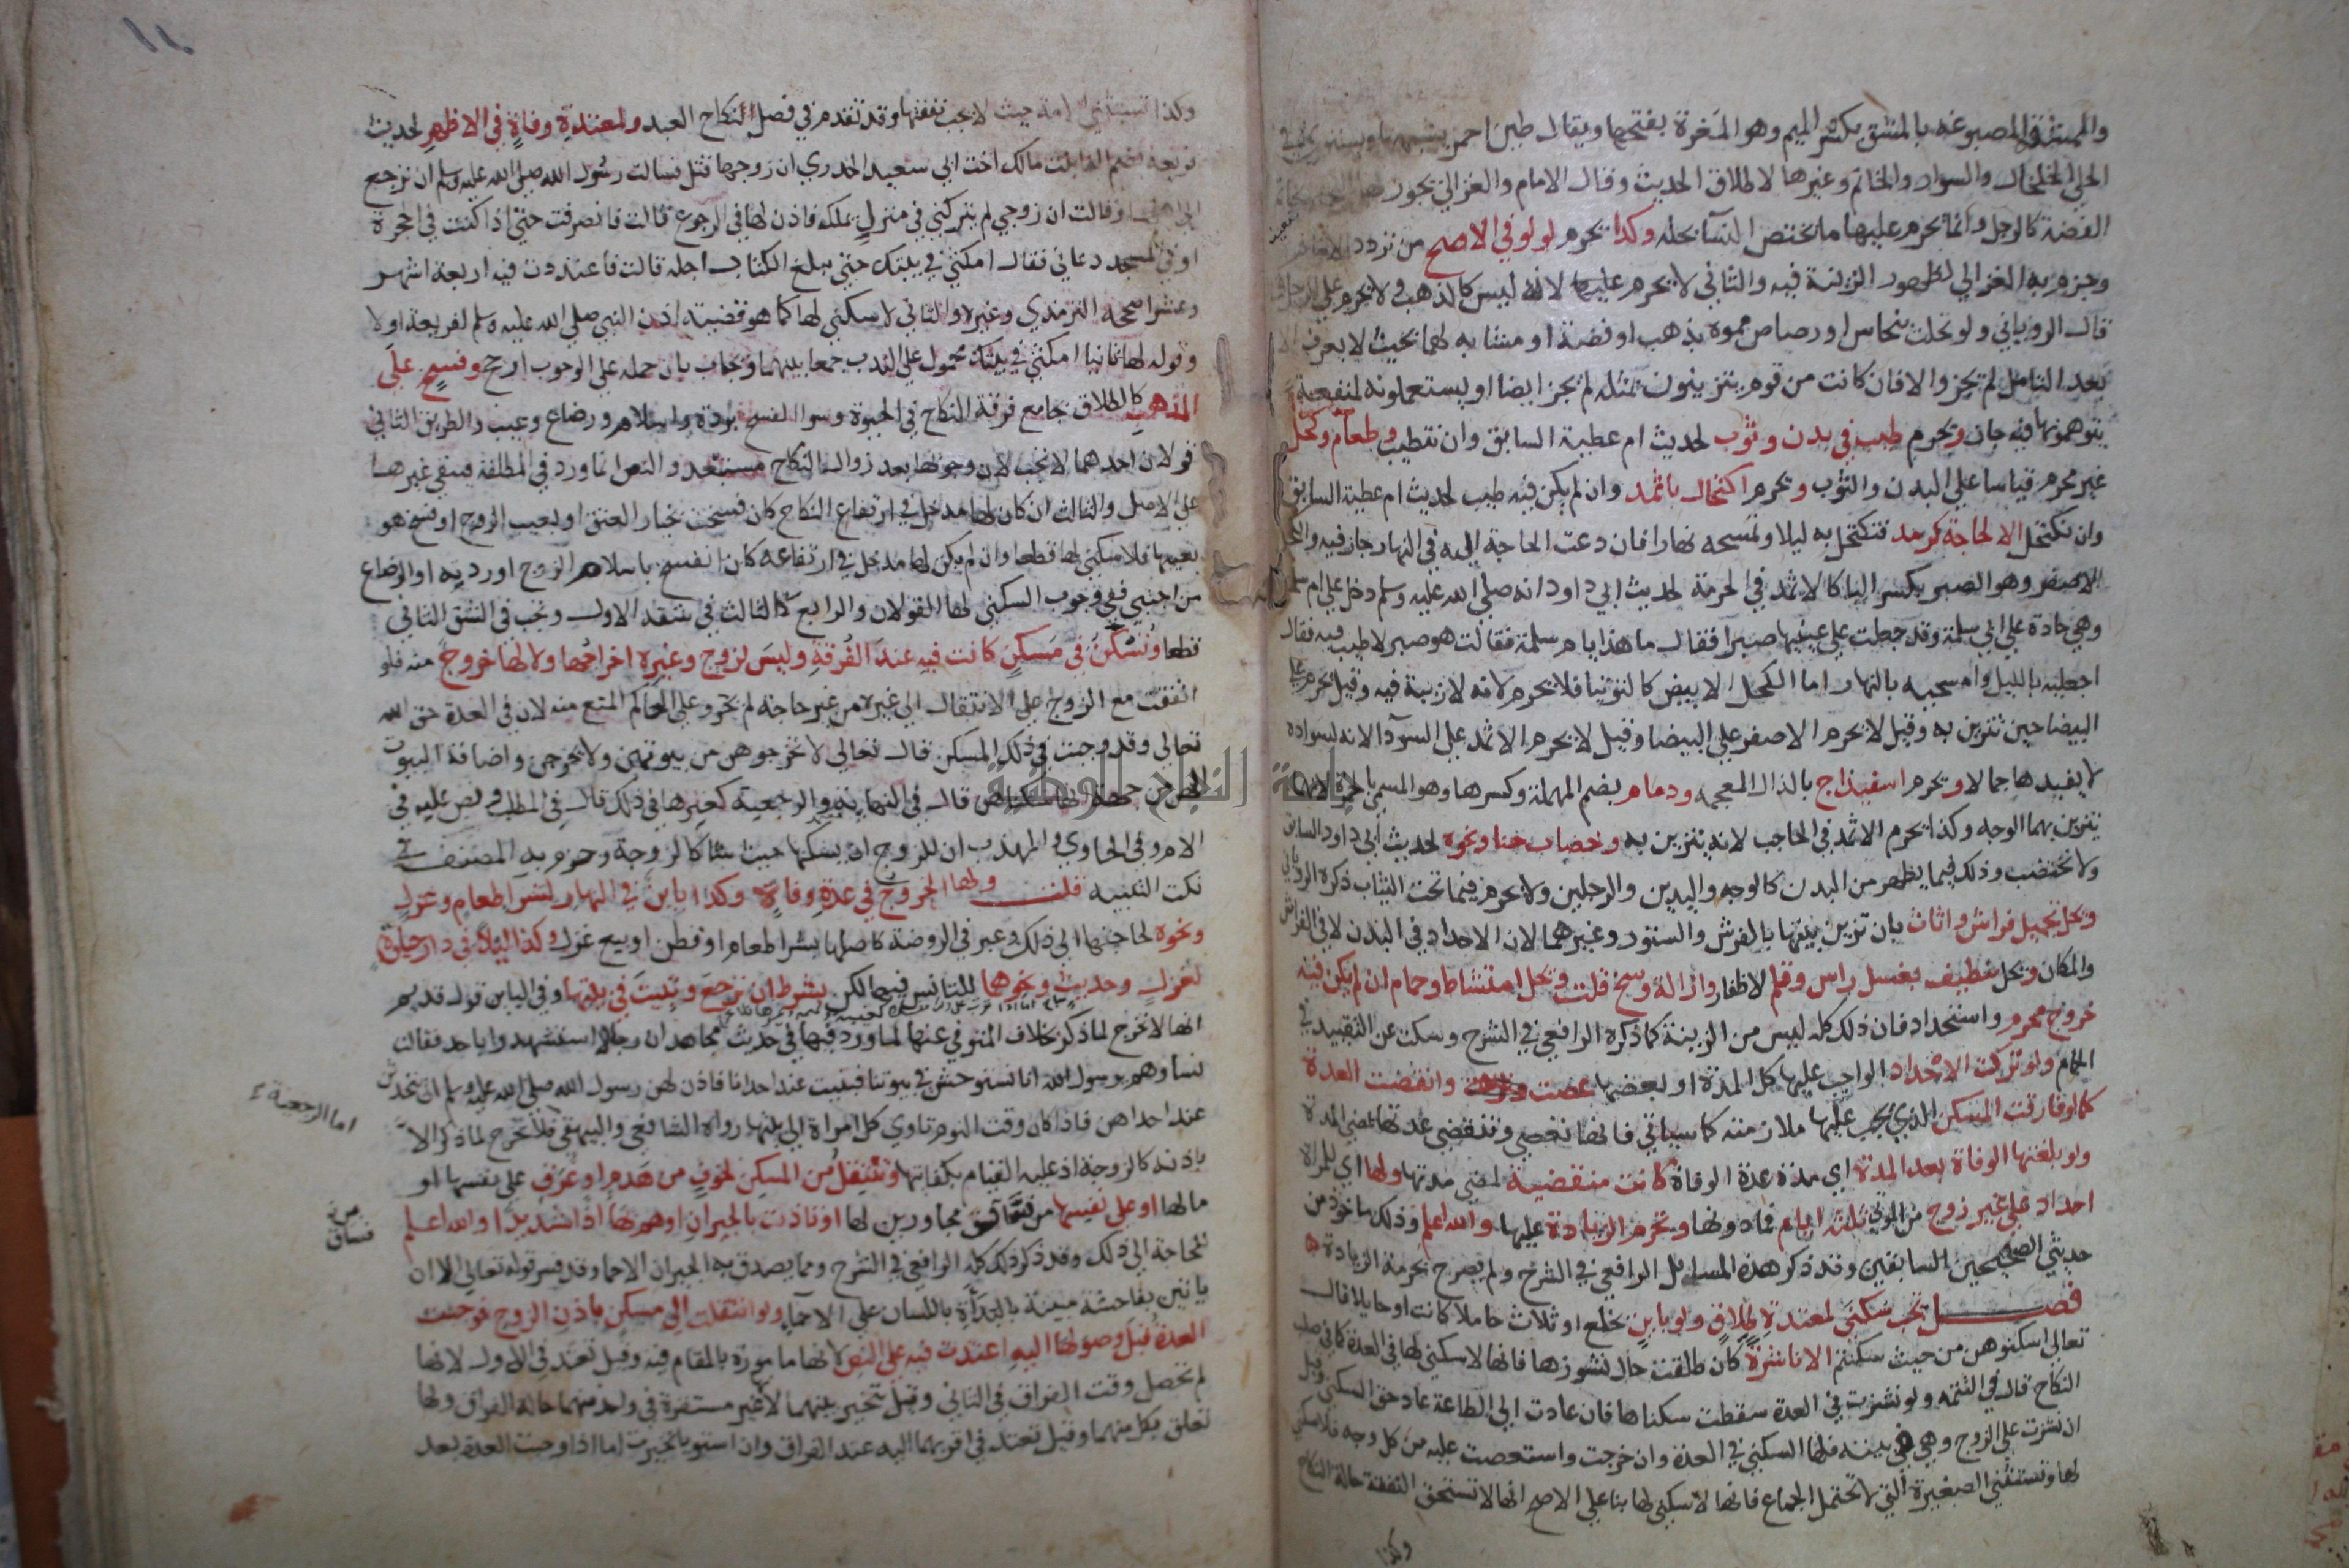 والممشقة المصبوغة بالمشق بكسر الميم وهو المغرة بفتحها ويقال طين احمر يشبهها ويستثنى
الحلي الخلخال والسوار والخاتم وغيرها لاطلاق الحديث وقال الامام والغزالي يجوز لها
الفضة كالرجل وانما يحرم عليها ما تختص النسآ بحله وكذا يحرم لولو في الاصح من تردد للامام
وجزم به الغزالي لظهور الزينة فيه والثاني لا يحرم عليها لانه ليس كالذهب ولا يحرم على الرجل
قال الروياني ولو تحلت بنحاس او رصاص مموه بذهب او فضة او مشابه لهما بحيث لا يعرف الا
بعد التامل لم يجز والا فان كانت من قوم يتزينون بمثله لم يجز ايضا او يستعملونه لمنفعة
يتوهمونها فيه جاز ويحرم طيب في بدن وثوب لحديث ام عطية السابق وان نتطيب وطعام وكحل
غير محرم قياسا علي البدن والثوب ويحرم اكتحال باثمد وان لم يكن فيه طيب لحديث ام عطية السابق
وان نكتحل الا لحاجة كرمد فتكتحل به ليلا وتمسحه نهارا فان دعت الحاجة اليه في النهار جاز فيه والكحل
الاصفر وهو الصبر بكسر البا كالاثمد في الحرمة لحديث ابي داود انه صلي الله عليه وسلم دخل علي ام سلمة
وهي حادة علي ابي سلمة وقد جعلت علي عينيها صبرا فقال ما هذا يا ام سلمة فقالت هو صبر لا طيب فيه فقال
اجعليه بالليل وامسحيه بالنهار اما الكحل الابيض كالتوتيا فلا يحرم لانه لا زينة فيه وقيل يحرم علي
البيضا حين تتزين به وقيل لا يحرم الاصفر علي البيضا وقيل لا يحرم الاثمد علي السودآ لانه لسواده
لا يفيدها جمالا ويحرم اسفيذاج بالذال المعجمة ودمام بضم المهملة وكسرها وهو المسمي بالحمرة لانها
يتزين بهما الوجه وكذا يحرم الاثمد في الحاجب لانه يتزين به وخضاب حنا ونحوه لحديث ابي داود السابق
ولا نختضب وذلك فيما يظهر من البدن كالوجه واليدين والرجلين ولا يحرم فيما تحت الثياب ذكره الروياني
ويحل تجميل فراش واثاث بان تزين بيتها بالفرش والستور وغيرهما لان الاحداد في البدن لا في الفراش
والمكان ويحل تنظيف بغسل راس وقلم لاظفار وازالة وسخ قلت ويحل امتشاط وحمام ان لم يكن فيه
خروج محرم واستحداد فان ذلك كله ليس من الزينة كما ذكره الرافعي في الشرح وسكت عن التقييد في
الحمام ولو تركت الاحداد الواجب عليها كل المدة او بعضها عصت وانقضت العدة
كما لو فارقت المسكن الذي يجب عليها ملازمته كما سياتي فانها تعصي وتنقضي عدتها بمضي المدة
ولو بلغتها الوفاة بعد المدة اي مدة عدة الوفاة كانت منقضية لمضي مدتها ولها اي للمراة
احداد علي غير زوج من الموتي ثلثة ايام فما دونها وتحرم الزيادة عليها والله اعلم وذلك ماخوذ من
حديثي الصحيحين السابقين وقد ذكر هذه المسايل الرافعي في الشرح ولم يصرح بحرمة الزيادة
فصل تجب سكني لمعتدة طلاق ولو باين بخلع او ثلاث حاملا كانت او حايلا قال
تعالي اسكنوهن من حيث سكنتم الا ناشزة كان طلقت حال نشوزها فانها لا سكني لها في العدة كما في صلب
النكاح قال في التتمة ولو نشزت في العدة سقطت سكناها فان عادت الي الطاعة عاد حق السكني وقيل
ان نشزت علي الزوج وهي في بيته فلها السكني في العدة وان خرجت واستعصت عليه من كل وجه فلا سكني
لها وتستثني الصغيرة التي لا تحتمل الجماع فانها لا سكني لها بنا علي الاصح انها لا تستحق النفقة حالة النكاح
وكذا
وكذا تستثني الامة حيث لا تجب نفقتها وقد تقدم في فصل النكاح العبد ولمعتدة وفاة في الاظهر لحديث
فريعة بضم الفا بنت مالك اخت ابي سعيد الخدري ان زوجها قتل فسالت رسول الله صلي الله عليه وسلم ان ترجع
الي اهلها وقالت ان زوجي لم يتركني في منزل يملكه فاذن لها في الرجوع قالت فانصرفت حتي اذا كنت في الحجرة
او في المسجد دعاني فقال امكثي في بيتك حتي يبلغ الكتاب اجله قالت فاعتددت فيه اربعة اشهر
وعشرا صححه الترمذي وغيره والثاني لا سكني لها كما هو قضية اذن النبي صلي الله عليه وسلم لفريعة اولا
وقوله لها ثانيا امكثي في بيتك محمول علي الندب جمعا بينهما ويجاب بان حمله علي الوجوب ارجح وفسخ علي
المذهب كالطلاق بجامع فرقة النكاح في الحيوة وسوا الفسخ بردة واسلام ورضاع وعيب والطريق الثاني
قولان احدهما لا تجب لان وجوبها بعد زوال النكاح مستبعد والنص انما ورد في المطلقة فيبقي غيرها
علي الاصل والثالث ان كان لها مدخل في ارتفاع النكاح كان فسخت بخيار العتق او بعيب الزوج او فسخ هو
بعيبها فلا سكني لها قطعا وان لم يكن لها مدخل في ارتفاعه كان انفسخ باسلام الزوج او ردته او الرضاع
من اجنبي ففي وجوب السكني لها القولان والرابع كالثالث في شقه الاول وتجب في الشق الثاني
قطعا وتسكن في مسكن كانت فيه عند الفرقة وليس لزوج وغيره اخراجها ولا لها خروج منه فلو
اتفقت مع الزوج علي الانتقال الي غيره من غير حاجة لم يجز وعلي الحاكم المنع منه لان في العدة حق الله
تعالي وقد وجبت في ذلك المسكن قال تعالي لا تخرجوهن من بيوتهن ولا يخرجن واضافة البيوت
اليهن من جهة انها سكناهن قال في النهاية والرجعية كغيرها في ذلك قال في المطلب ونص عليه في
الام وفي الحاوي والمهذب ان للزوج ان يسكنها حيث شا كالزوجة وجزم به المصنف في
نكت التنبيه قلت ولها الخروج في عدة وفاة وكذا باين في النهار لشرا طعام وغزل
ونحوه لحاجتها الي ذلك وعبر في الروضة كاصلها بشرا طعام او قطن او بيع غزل وكذا ليلا في دار جارة
لغزل وحديث ونحوهما للتانس فيهما لكن بشرط ان ترجع وتبيت في بيتها وفي الباين قول قديم
انها لا تخرج لما ذكر بخلاف المتوفي عنها لما ورد فيها في حديث مجاهد ان رجالا استشهدوا باحد فقالت
نساوهم يرسول الله انا نستوحش في بيوتنا فنبيت عند احدانا فاذن لهن رسول الله صلي الله عليه وسلم ان يتحدثن
عند احداهن فاذا كان وقت النوم تاوي كل امراة الي بيتها رواه الشافعي والبيهقي فلا تخرج لما ذكر الا
اما الرجعية
باذنه كالزوجة اذ عليه القيام بكفايتها وتنتقل من المسكن لخوف من هدم او غرق علي نفسها او
مالها او علي نفسها من فساق مجاورين لها او تاذت بالجيران او هم بها اذا شديدا والله اعلم
من فساق
للحاجة الي ذلك وقد ذكر ذلك كله الرافعي في الشرح ومما يصدق به الجيران الاحما وقد فسر قوله تعالي الا ان
ياتين بفاحشة مبينة بالبذاة باللسان علي الاحمآ ولو انتقلت الي مسكن باذن الزوج فوجبت
العدة قبل وصولها اليه اعتدت فيه علي النص لانها مامورة بالمقام فيه وقيل تعتد في الاول لانها
لم تحصل وقت الفراق في الثاني وقيل تتخير بينهما لانها غير مستقرة في واحد منهما حالة الفراق ولها
تعلق بكل منهما وقيل تعتد في اقربهما اليه عند الفراق وان استويا تخيرت اما اذا وجبت العدة بعد